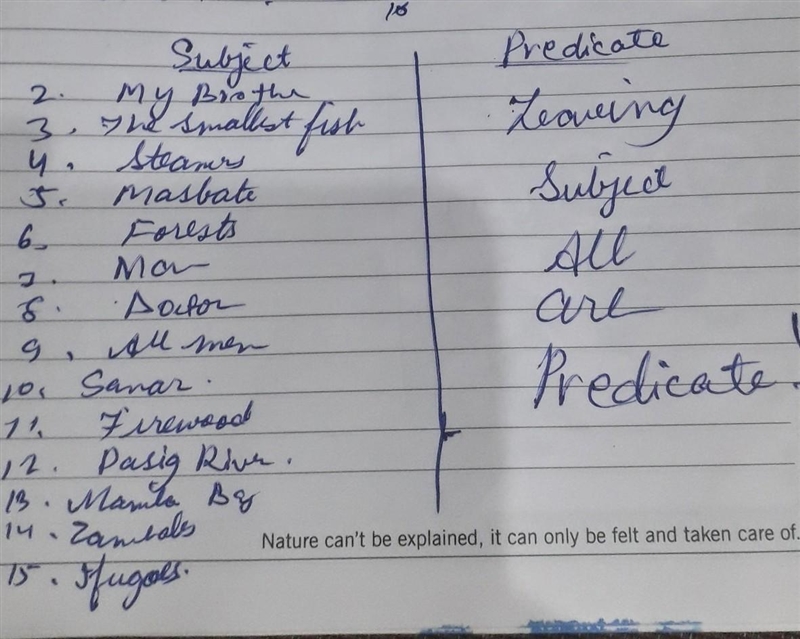 16
Subject
2. My Brothe
3. The smallest fish
4. Steamrs
5. Masbate
6. Forests
7. Man
8. Doctor
9. All men
10. Samar.
11. Firewood
12. Pasig River.
13. Manila Bay
14. Zambales
15. Ifugaos.
Predicate
Leaveing
Subject
All
are
Predicate.
Nature can't be explained, it can only be felt and taken care of.